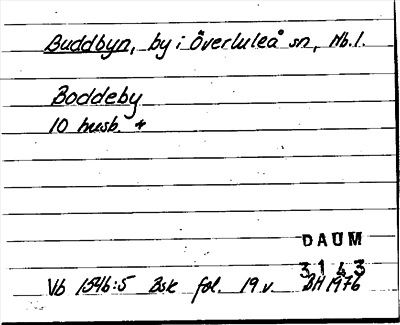 Buddbyn, by i Överluleå sn, Nb.l.
Boddeby
10 husb. *
DAUM
3143
Vb 1546:5 Bsk fol. 19 v. BH 1976